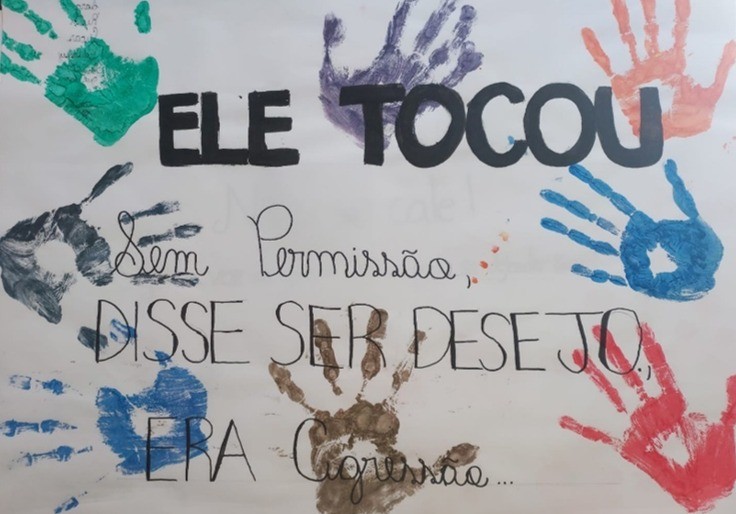 ELE TOCOU
Sem Permissão,
DISSE SER DESEJO,
ERA Agressão...